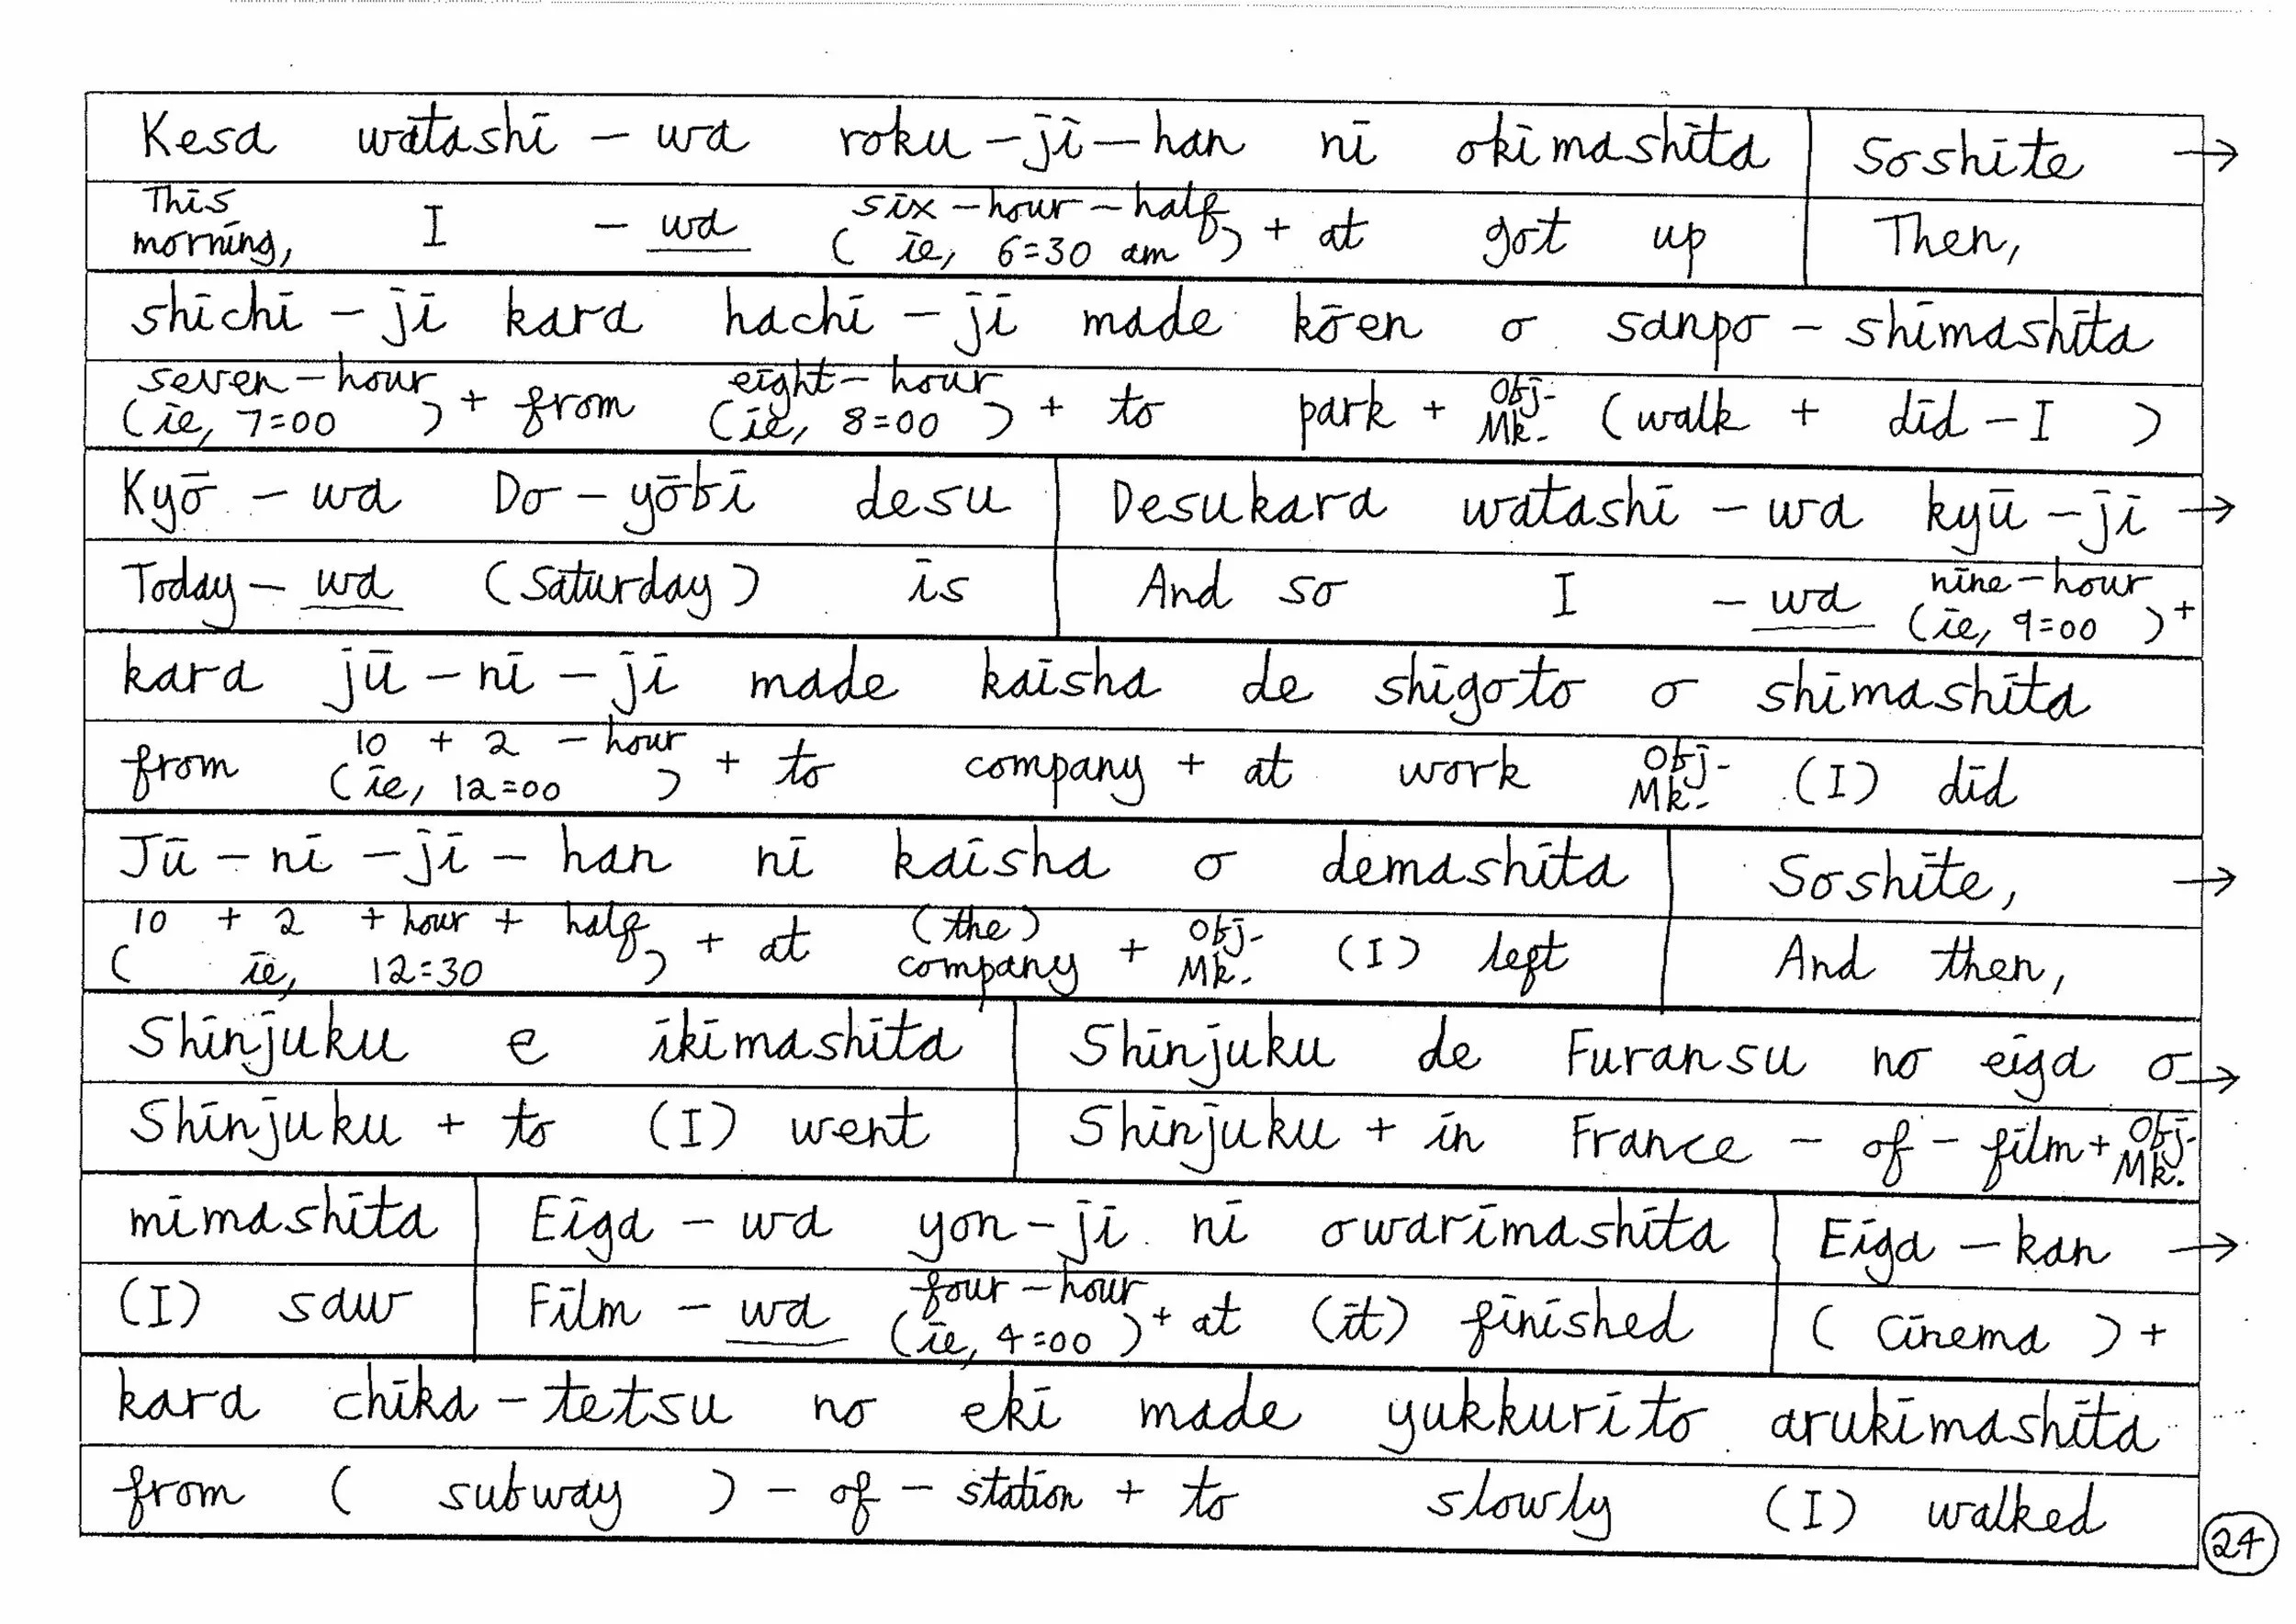 Kesa watashi - wa roku - ji - han ni okimashita Soshite →
This morning, I - wa six - hour - half (ie, 6=30 am) + at got up Then,
shichi - ji kara hachi - ji made kōen o sanpo - shimashita
seven - hour (ie, 7=00) + from eight - hour (ie, 8=00) + to park + Obj- Mk. (walk + did - I)
Kyō - wa Do - yōbi desu Desukara watashi - wa kyū - ji →
Today - wa (Saturday) is And so I - wa nine - hour (ie, 9=00) +
kara jū - ni - ji made kaisha de shigoto o shimashita
from 10 + 2 - hour (ie, 12=00) + to company + at work Obj- Mk. (I) did
Jū - ni - ji - han ni kaisha o demashita Soshite, →
10 + 2 + hour + half (ie, 12=30) + at (the) company + Obj- Mk. (I) left And then,
Shinjuku e ikimashita Shinjuku de Furansu no eiga o →
Shinjuku + to (I) went Shinjuku + in France - of - film + Obj- Mk.
mimashita Eiga - wa yon - ji ni owarimashita Eiga - kan →
(I) saw Film - wa four - hour (ie, 4=00) + at (it) finished (cinema) +
kara chika - tetsu no eki made yukkurito arukimashita
from (subway) - of - station + to slowly (I) walked
24